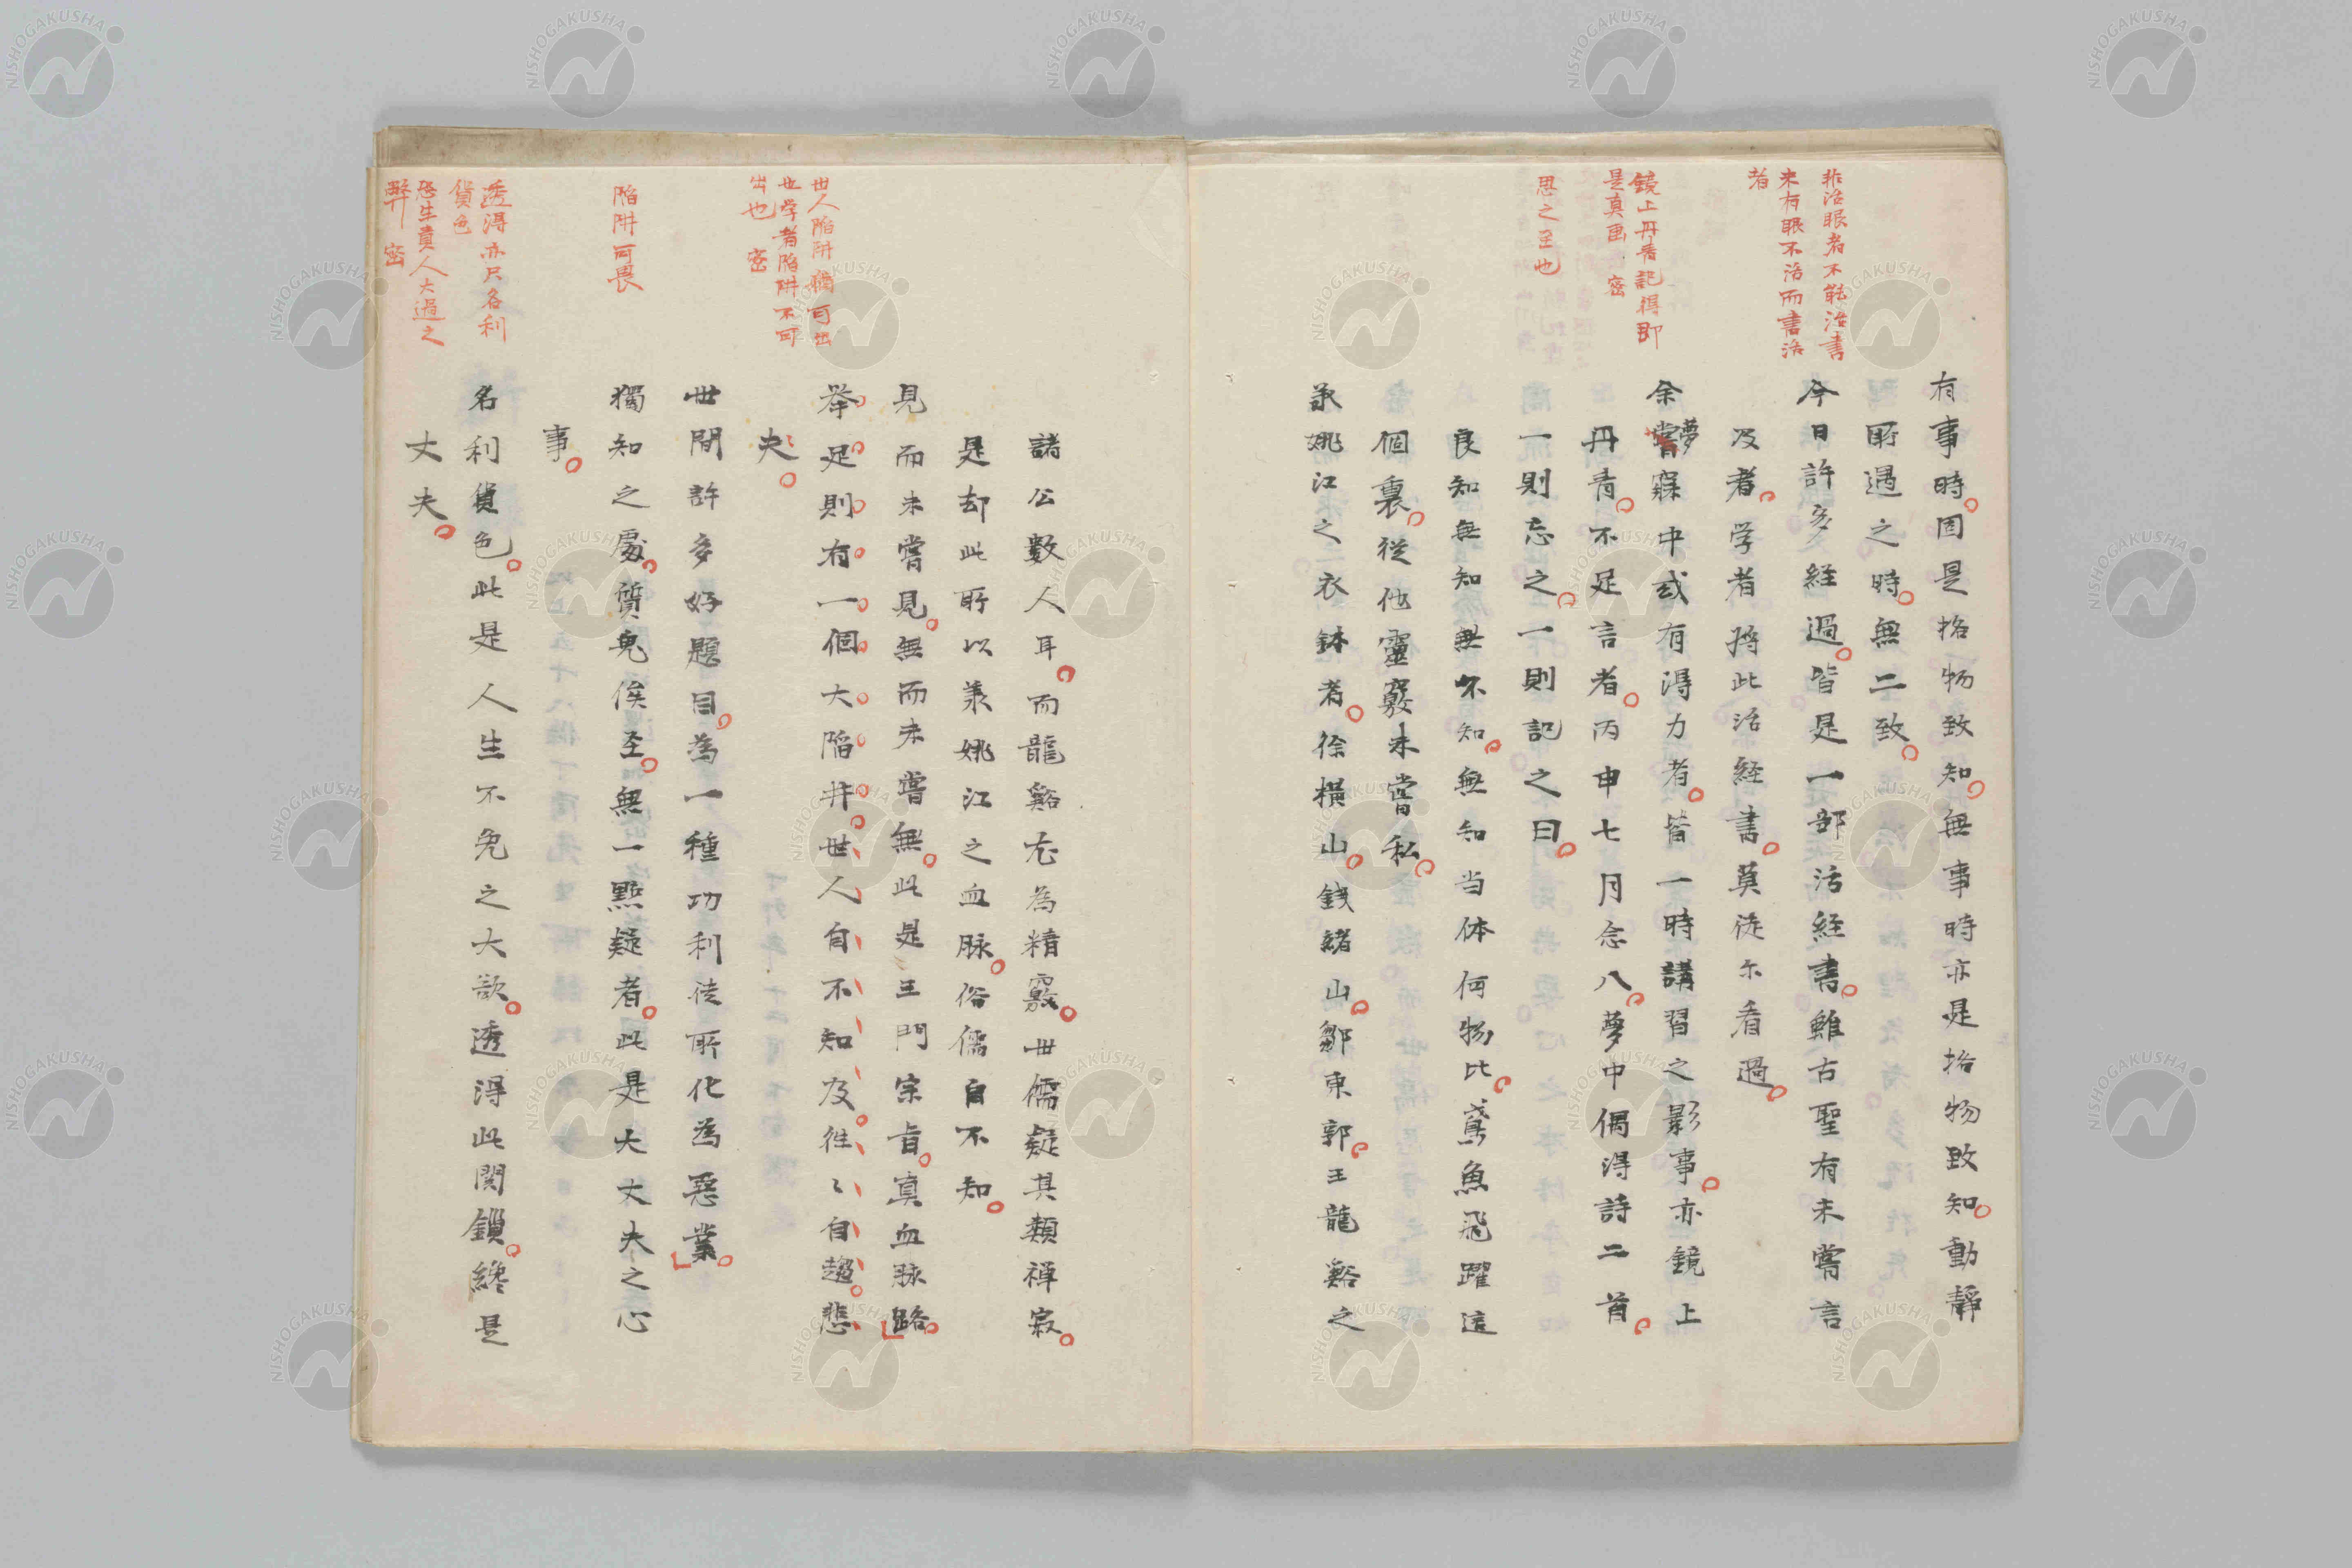 非活眼者不能活書
未有眼不活而書活
者
鏡上丹青記得即
是真画 密
思之至也
有事時固是格物致知無事時亦是格物致知動静
所遇之時無二致
今日許多経過皆是一部活経書雖古聖有未嘗言
及者学者将此活経書莫徒尓看過
余嘗夢寐中或有得力者皆一時講習之影事亦鏡上
丹青不足言者丙申七月念八夢中偶得詩二首
一則忘之一則記之曰
良知無知無不知無知当体何物比鳶魚飛躍這
個裏従他霊竅未嘗私
承姚江之衣鉢者徐横山銭緒山鄒東郭王龍谿之
世人陥阱猶可出
也学者陥阱不可
出也 密
陥阱可畏
透得亦只名利
貨色
恐生責人大過之
弊 密
諸公數人耳而龍谿尤為精竅世儒疑其類禅寂
是却此所以承姚江之血脉俗儒自不知
見而未嘗見無而未嘗無此是王門宗旨真血脉路
举足則有一個大陥井世人自不知及往々自趨悲
夫
世間許多好題目為一種功利徒所化為悪業
獨知之處質鬼俟聖無一點疑者此是大丈夫之心
事
名利貨色此是人生不免之大欲透得此関鎖纔是
丈夫